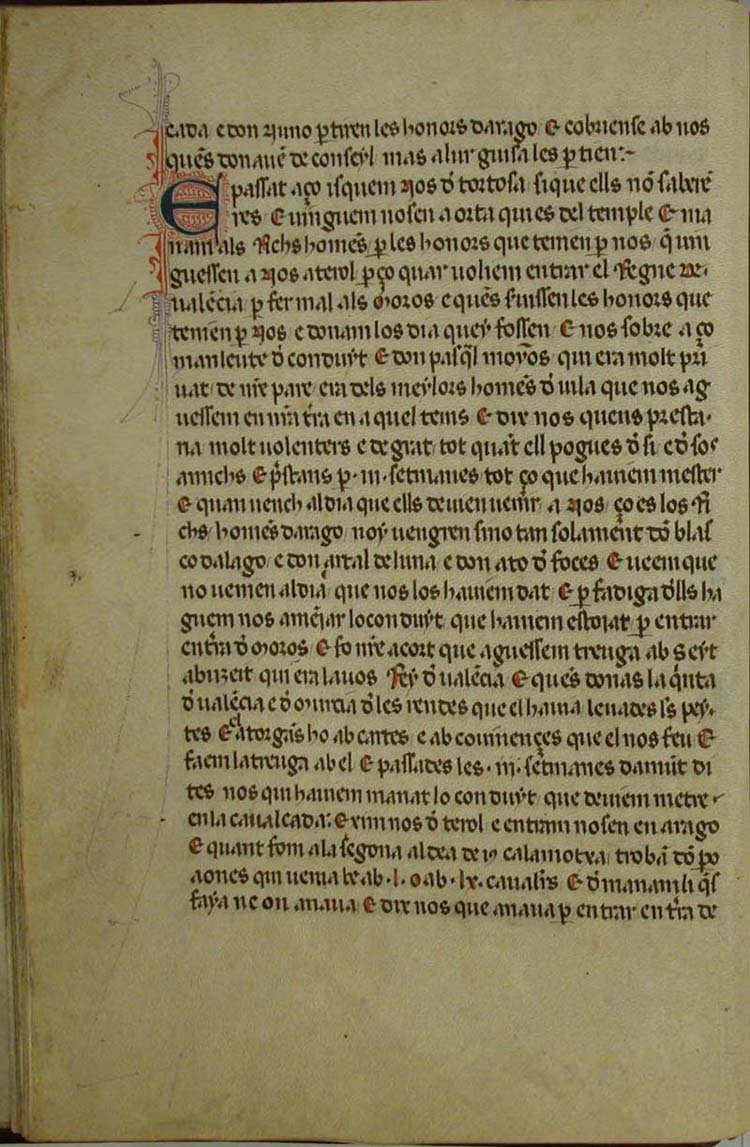 cada e don Nuno ꝑtiren les honors darago E cobriense ab nos
ques donaue de conseyl mas alur guisa les ꝑtien:~
E passat aço isquem nos d tortosa si que ells no saberē
res E uinguem nosen a orta qui es del temple E ma
nam als Richs homēs ꝑ les honors que tenien ꝑ nos q̄ uin
guessen a Nos aterol ꝑ ço quar uoliem entrar el Regne de
ualēcia ꝑ fer mal als Moros e ques siuissen les honors que
tenien ꝑ Nos e donam los dia que y fossen E nos sobre aço
manleute d conduyt E don pasqł moyos qui era molt pri
uat de nr̄e pare era dels meylors homēs d uila que nos ag
uessem en nr̄a tr̄a en aquel tems E dix nos quens presta
ria molt uolenters e de grat tot quāt ell pogues d si e d sos
amichs E p̄stans ꝑ .iii. setmanes tot ço que hauiem mester
E quan uench al dia que ells deuien uenir a Nos ço es los Ri
chs homēs darago noy uengren sino tan solament dō blas
co dalago e don artal de luna e don ato d foces E ueem que
no uenien al dia que nos los hauiem dat E ꝑ fadiga dlls ha
guem nos amējar lo conduyt que hauiem estojat ꝑ entrar
en tr̄a d Moros E fo nr̄e acort que aguessem treuga ab Seyt
abuzeit qui era lauos Rey d ualēcia E ques donas la qnta
d ualēcia e d Murcia d les rendes que el hauia leuades ls pey
tes E el atorgās ho ab cartes e ab couinençes que el nos feu E
faem la treuga ab el E passades les .iii. setmanes damūt di
tes nos qui hauiem manat lo conduyt que deuiem metre
en la caualcada: Exim nos d terol e entram nosen en arago
E quant fom a la segona aldea de calamotxa trobā dō po
aones qui uenia be ab .l. o ab .lx. caualrs E dmanam li q̄s
faya ne on anaua E dix nos que anaua ꝑ entrar en tr̄a de